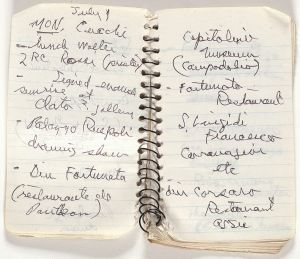 July 9
MON.
- Lunch Walter
2 RC Rosen (prints)
- Signed
sunrise at
Data gallery
- Palazzo Ruspoli
drawing show
- Din Fortunata
(restaurante
Pantheon)
Capitoline
Museum
(Campodoglio)
- Fortunato
Restaurant
S. Luigi di
Francesco
Caravaggio
etc
din Corsaro
Restaurant